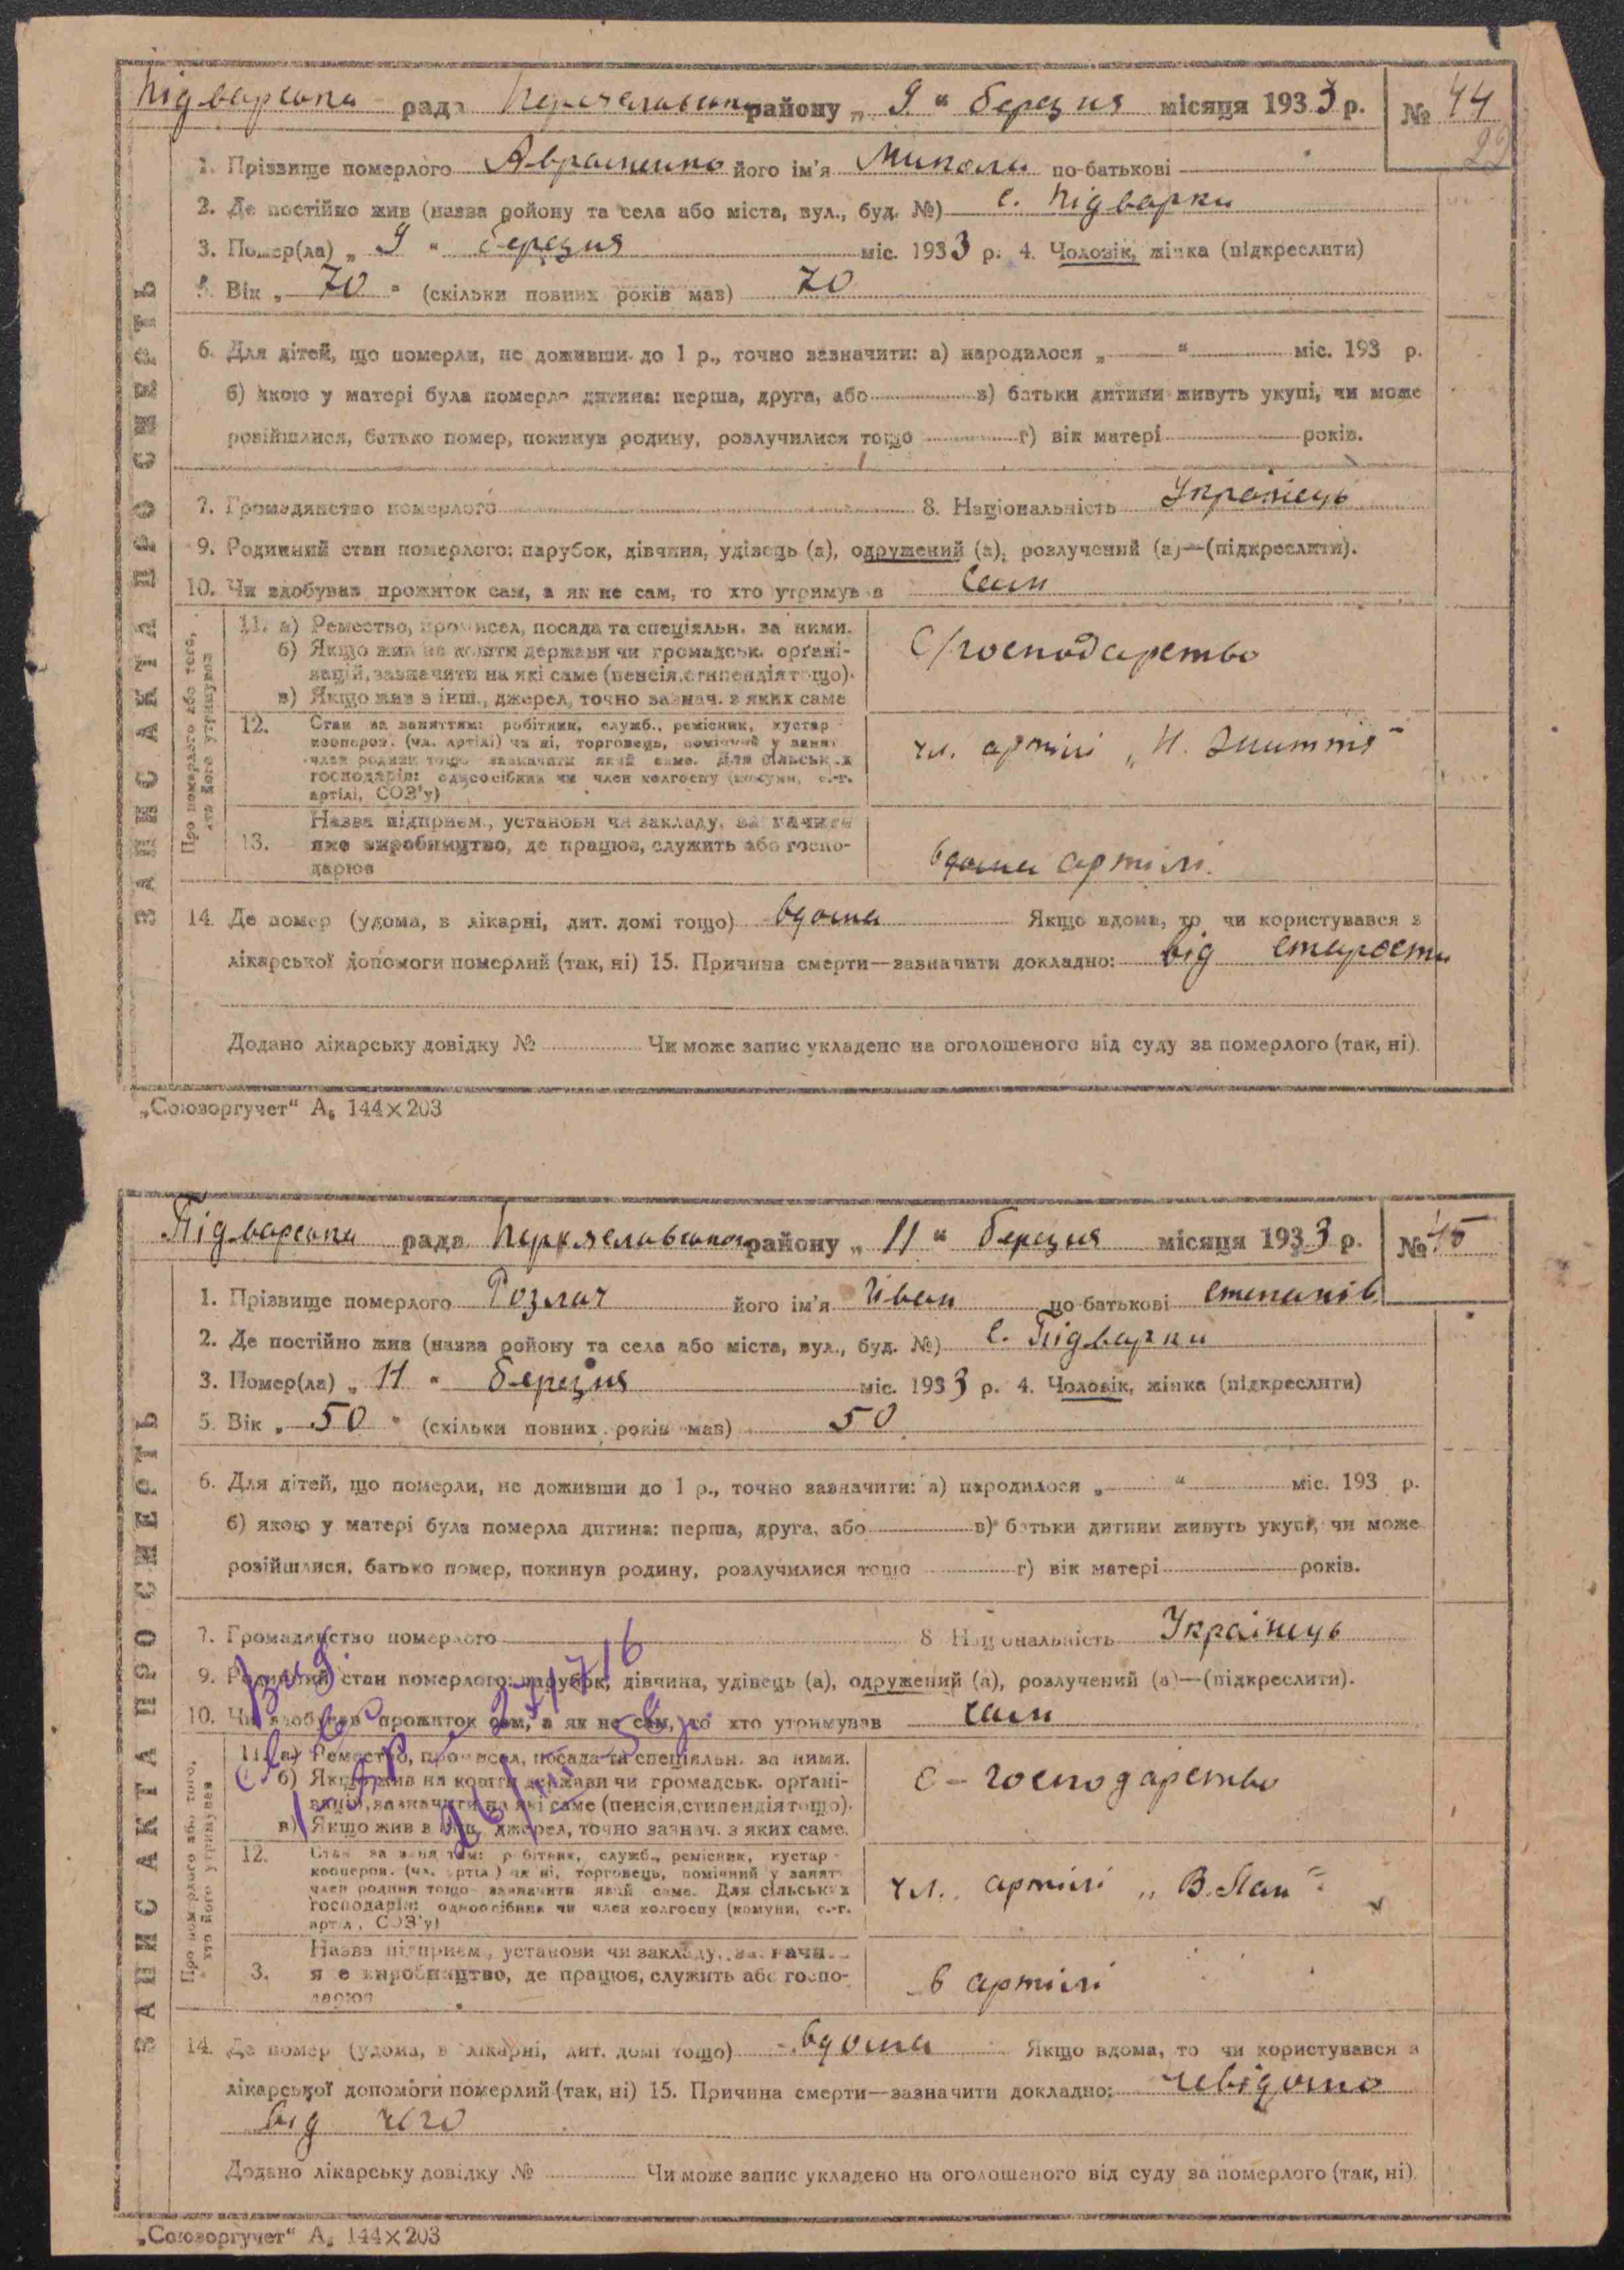 Підварська рада Переяславськ району „ 9 “ березня місяця 1933 р. № 44
22
1. Прізвище померлого Авраменко його ім'я Микола по-батькові
2. Де постійно жив (назва ройону та села або міста, вул., буд. №) с. Підварки
3. Помер(ла) „ 9 “ березня міс. 1933 р. 4. Чоловік, жінка (підкреслити)
5. Вік „ 70 “ (скільки повних років мав) 70
6. Для дітей, що померли, не доживши до 1 р., точно зазначити: а) народилося „ “ міс. 193 р.
б) якою у матері була померла дитина: перша, друга, або в) батьки дитини живуть укупі, чи може
розійшлися, батько помер, покинув родину, розлучилися тощо г) вік матері років.
7. Громадянство померлого 8. Національність Українець
9. Родинний стан померлого: парубок, дівчина, удівець (а), одружений (а), розлучений (а)—(підкреслити).
10. Чи здобував прожиток сам, а як не сам, то хто утримував сам
ЗАПИС АКТА ПРО СМЕРТЬ
Про померлого або того, хто його утримував
11. а) Ремество, промисел, посада та спеціяльн. за ними.
б) Якщо жив на кошти держави чи громадськ. орґані-
зацій, зазначити на які саме (пенсія, стипендія тощо).
в) Якщо жив з інш., джерел, точно зазнач. з яких саме
С/господарство
12. Стан за заняттям: робітник, служб., ремісник, кустар
кооперов. (чл. артілі) чи ні, торговець, помічний у занят.
член родини тощо зазначити який саме. Для сільських
господарів: одноосібник чи член колгоспу (комуни, с.-г.
артілі, СОЗ'у)
чл. артілі „Н. Життя“
13. Назва підприєм., установи чи закладу, зазначити
яке виробництво, де працює, служить або госпо-
дарює
артілі.
14. Де помер (удома, в лікарні, дит. домі тощо) вдома Якщо вдома, то чи користувався з
лікарської допомоги померлий (так, ні) 15. Причина смерти—зазначити докладно: від старости
Додано лікарську довідку № Чи може запис укладено на оголошеного від суду за померлого (так, ні).
„Союзоргучет“ А₅ 144×203
Підварська рада Переяславського району „ 11 “ березня місяця 1933 р. № 45
1. Прізвище померлого Розлач його ім'я Іван по-батькові степанів
2. Де постійно жив (назва ройону та села або міста, вул., буд. №) с. Підварки
3. Помер(ла) „ 11 “ березня міс. 1933 р. 4. Чоловік, жінка (підкреслити)
5. Вік „ 50 “ (скільки повних років мав) 50
6. Для дітей, що померли, не доживши до 1 р., точно зазначити: а) народилося „ “ міс. 193 р.
б) якою у матері була померла дитина: перша, друга, або в) батьки дитини живуть укупі, чи може
розійшлися, батько помер, покинув родину, розлучилися тощо г) вік матері років.
7. Громадянство померлого 8. Національність Українець
9. Родинний стан померлого: парубок, дівчина, удівець (а), одружений (а), розлучений (а)—(підкреслити).
10. Чи здобував прожиток сам, а як не сам, то хто утримував сам
ЗАПИС АКТА ПРО СМЕРТЬ
Про померлого або того, хто його утримував
11. а) Ремество, промисел, посада та спеціяльн. за ними.
б) Якщо жив на кошти держави чи громадськ. орґані-
зацій, зазначити на які саме (пенсія, стипендія тощо).
в) Якщо жив з інш., джерел, точно зазнач. з яких саме.
с-господарство
12. Стан за заняттям: робітник, служб., ремісник, кустар
кооперов. (чл. артілі) чи ні, торговець, помічний у занят.
член родини тощо зазначити який саме. Для сільських
господарів: одноосібник чи член колгоспу (комуни, с.-г.
артіл., СОЗ'у)
чл. артілі „В. Лан“
3. Назва підприєм., установи чи закладу, зазначи.
яке виробництво, де працює, служить або госпо-
дарює
в артілі
14. Де помер (удома, в лікарні, дит. домі тощо) вдома Якщо вдома, то чи користувався з
лікарської допомоги померлий (так, ні) 15. Причина смерти—зазначити докладно: невідомо
від чого
Додано лікарську довідку № Чи може запис укладено на оголошеного від суду за померлого (так, ні).
„Союзоргучет“ А₅ 144×203